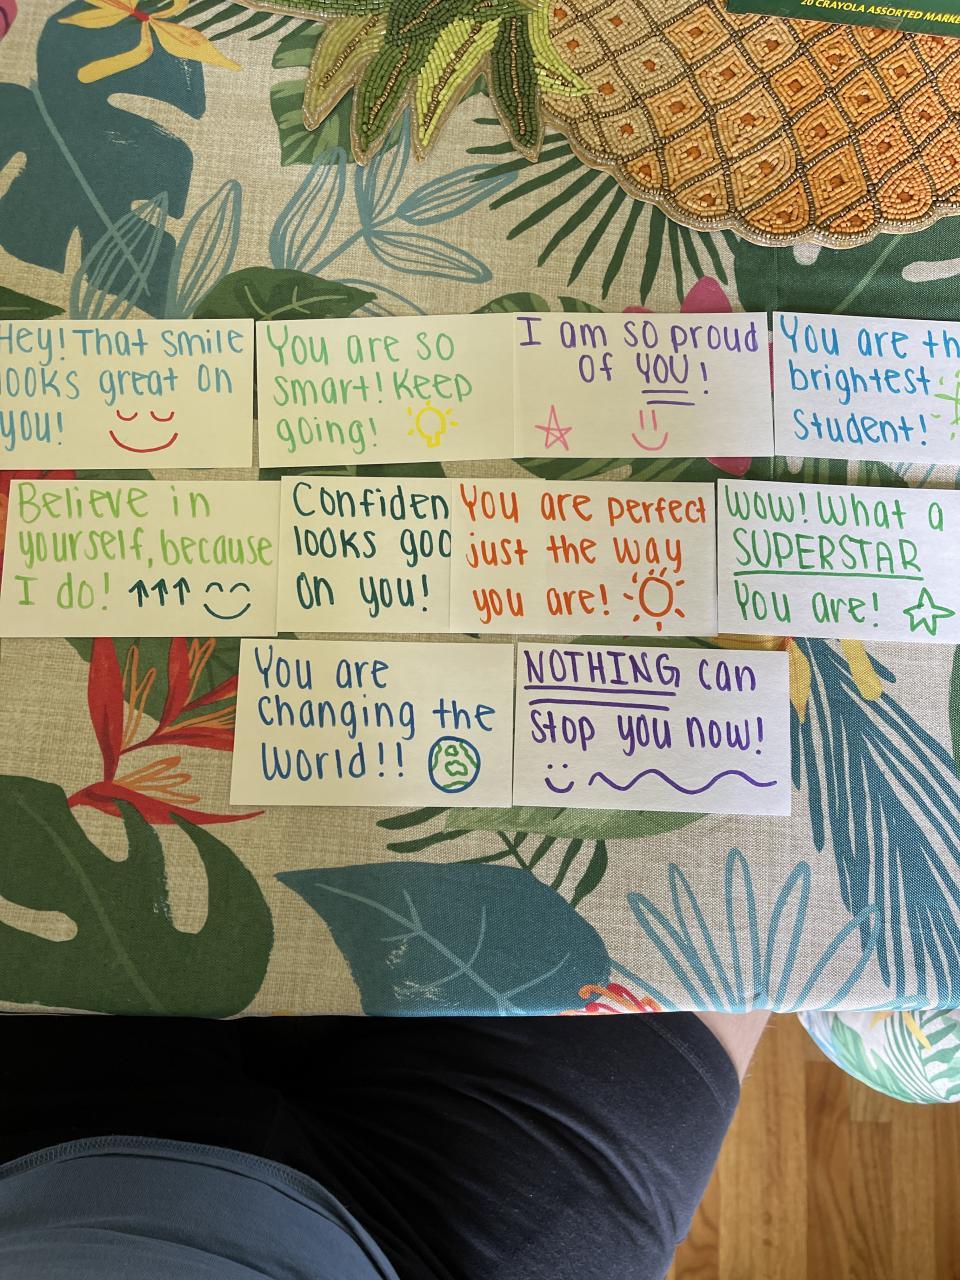 20 CRAYOLA ASSORTED MARKE
Hey! That smile
looks great on
you!
You are so
smart! Keep
going!
I am so proud
of YOU!
You are th
brightest
student!
Believe in
yourself, because
I do!
Confiden
looks goo
on you!
You are perfect
just the way
you are!
WOW! What a
SUPERSTAR
You are!
You are
changing the
world!!
NOTHING can
stop you now!